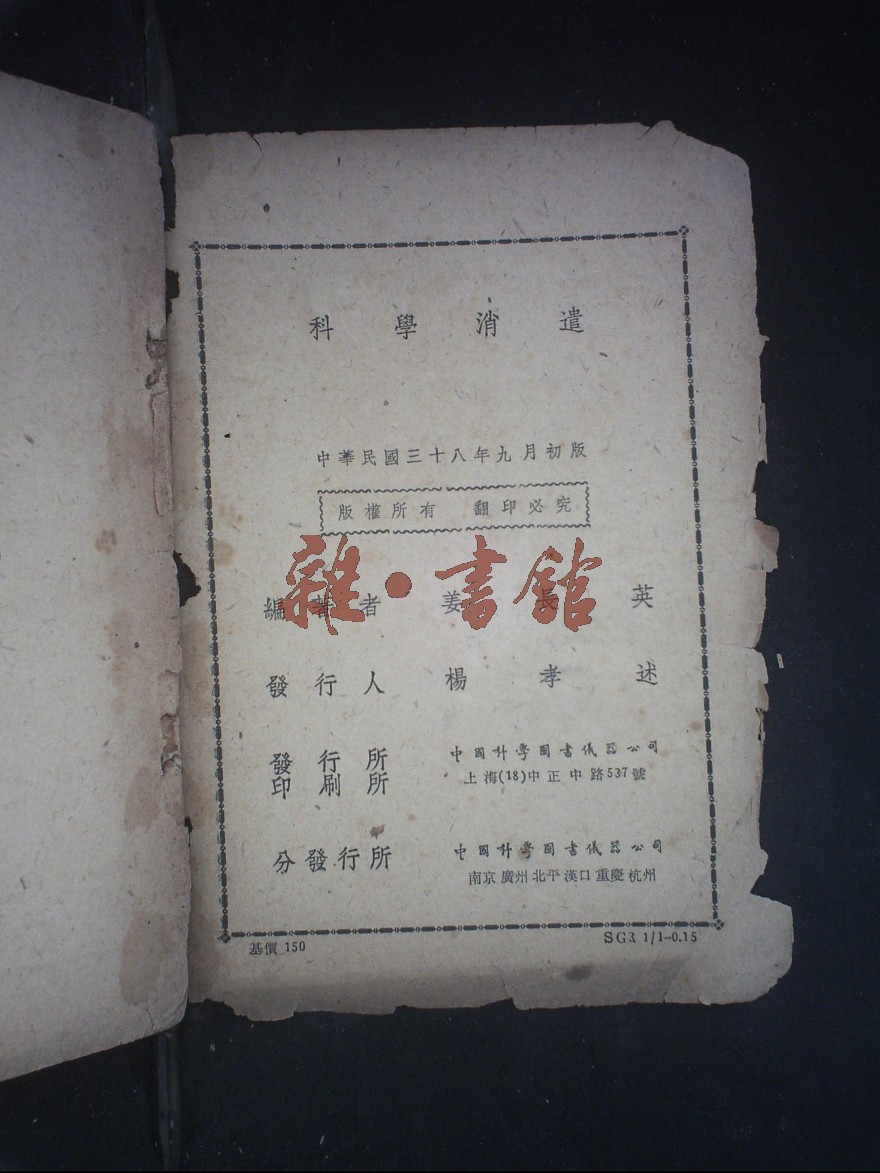 科學消遣
中華民國三十八年九月初版
版權所有 翻印必究
雜·書館
編著者 姜長英
發行人 楊孝述
發行所 中國科學圖書儀器公司
印刷所 上海(18)中正中路537號
分發行所 中國科學圖書儀器公司
南京 廣州 北平 漢口 重慶 杭州
基價 150
SG3 1/1-0.15